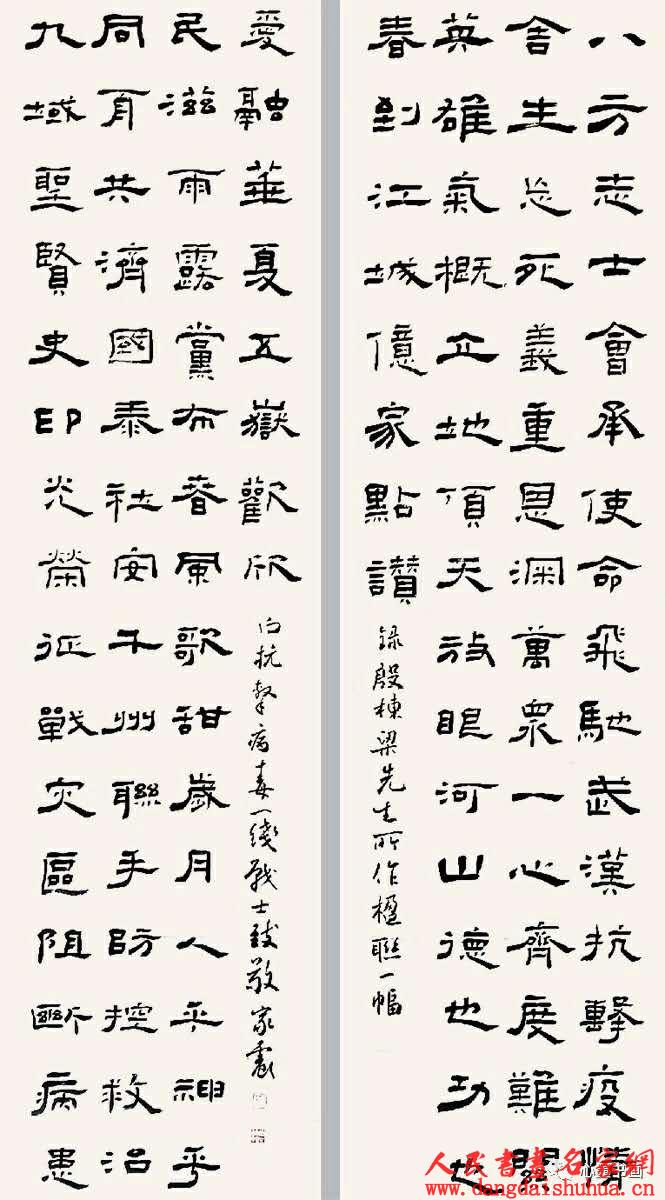 八方志士會承使命飛馳武漢抗擊疫情
舍生忘死義重恩渊萬眾一心齊度難關
英雄氣概立地頂天放眼河山德也功也
春到江城億家點讚
録殷棟梁先生所作楹聯一幅
九域聖賢史印光榮征戰灾區阻斷病患
同肩共濟國泰社安千州聯手防控救治
民滋雨露黨布春風歌甜歲月人乎神乎
愛融華夏五嶽歡欣
向抗擊病毒一线战士致敬 家
人民書畫名家網
www.dangdaishuhua.cn